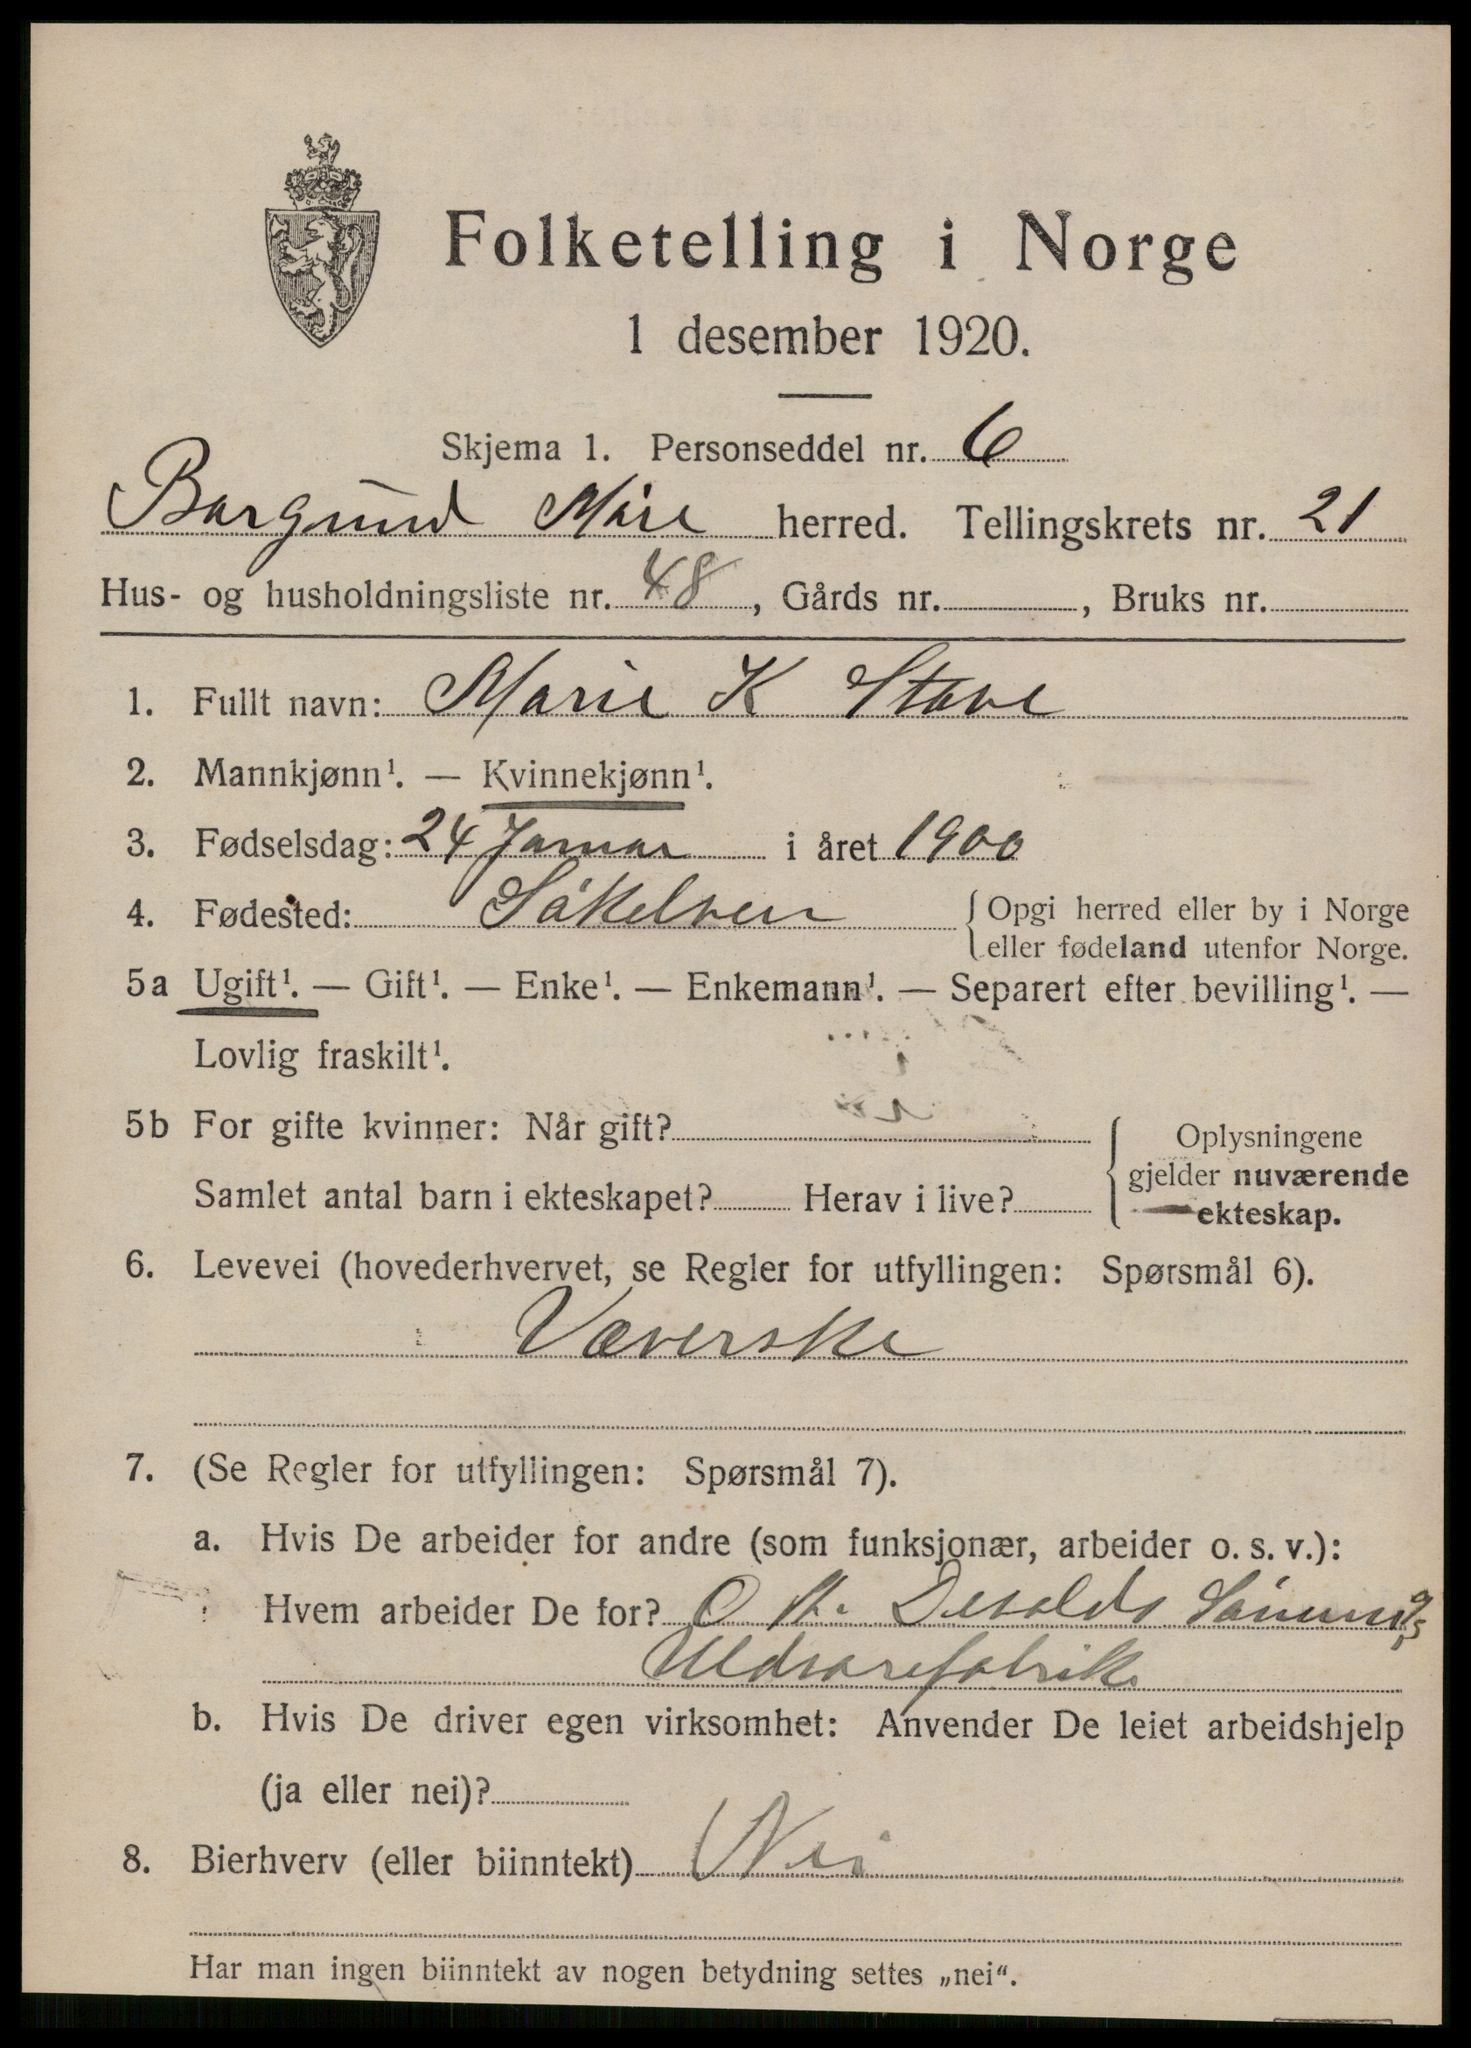 Folketelling i Norge
1 desember 1920.
Skjema 1. Personseddel nr. 6
Borgund Möre herred. Tellingskrets nr. 21
Hus- og husholdningsliste nr. 48, Gårds nr. , Bruks nr.
1. Fullt navn: Marie K Stave
2. Mannkjønn¹. — Kvinnekjønn¹.
3. Fødselsdag: 24 Januar i året 1900
4. Fødested: Sökelven { Opgi herred eller by i Norge
eller fødeland utenfor Norge.
5a Ugift¹. — Gift¹. — Enke¹. — Enkemann¹. — Separert efter bevilling¹. —
Lovlig fraskilt¹.
5b For gifte kvinner: Når gift?
Samlet antal barn i ekteskapet? Herav i live?
Oplysningene
gjelder nuværende
ekteskap.
6. Levevei (hovederhvervet, se Regler for utfyllingen: Spørsmål 6).
Væverske
7. (Se Regler for utfyllingen: Spørsmål 7).
a. Hvis De arbeider for andre (som funksjonær, arbeider o. s. v.):
Hvem arbeider De for? O A. Devolds Sönners
Uldvarefabrik
b. Hvis De driver egen virksomhet: Anvender De leiet arbeidshjelp
(ja eller nei)?
8. Bierhverv (eller biinntekt) Nei
Har man ingen biinntekt av nogen betydning settes „nei“.